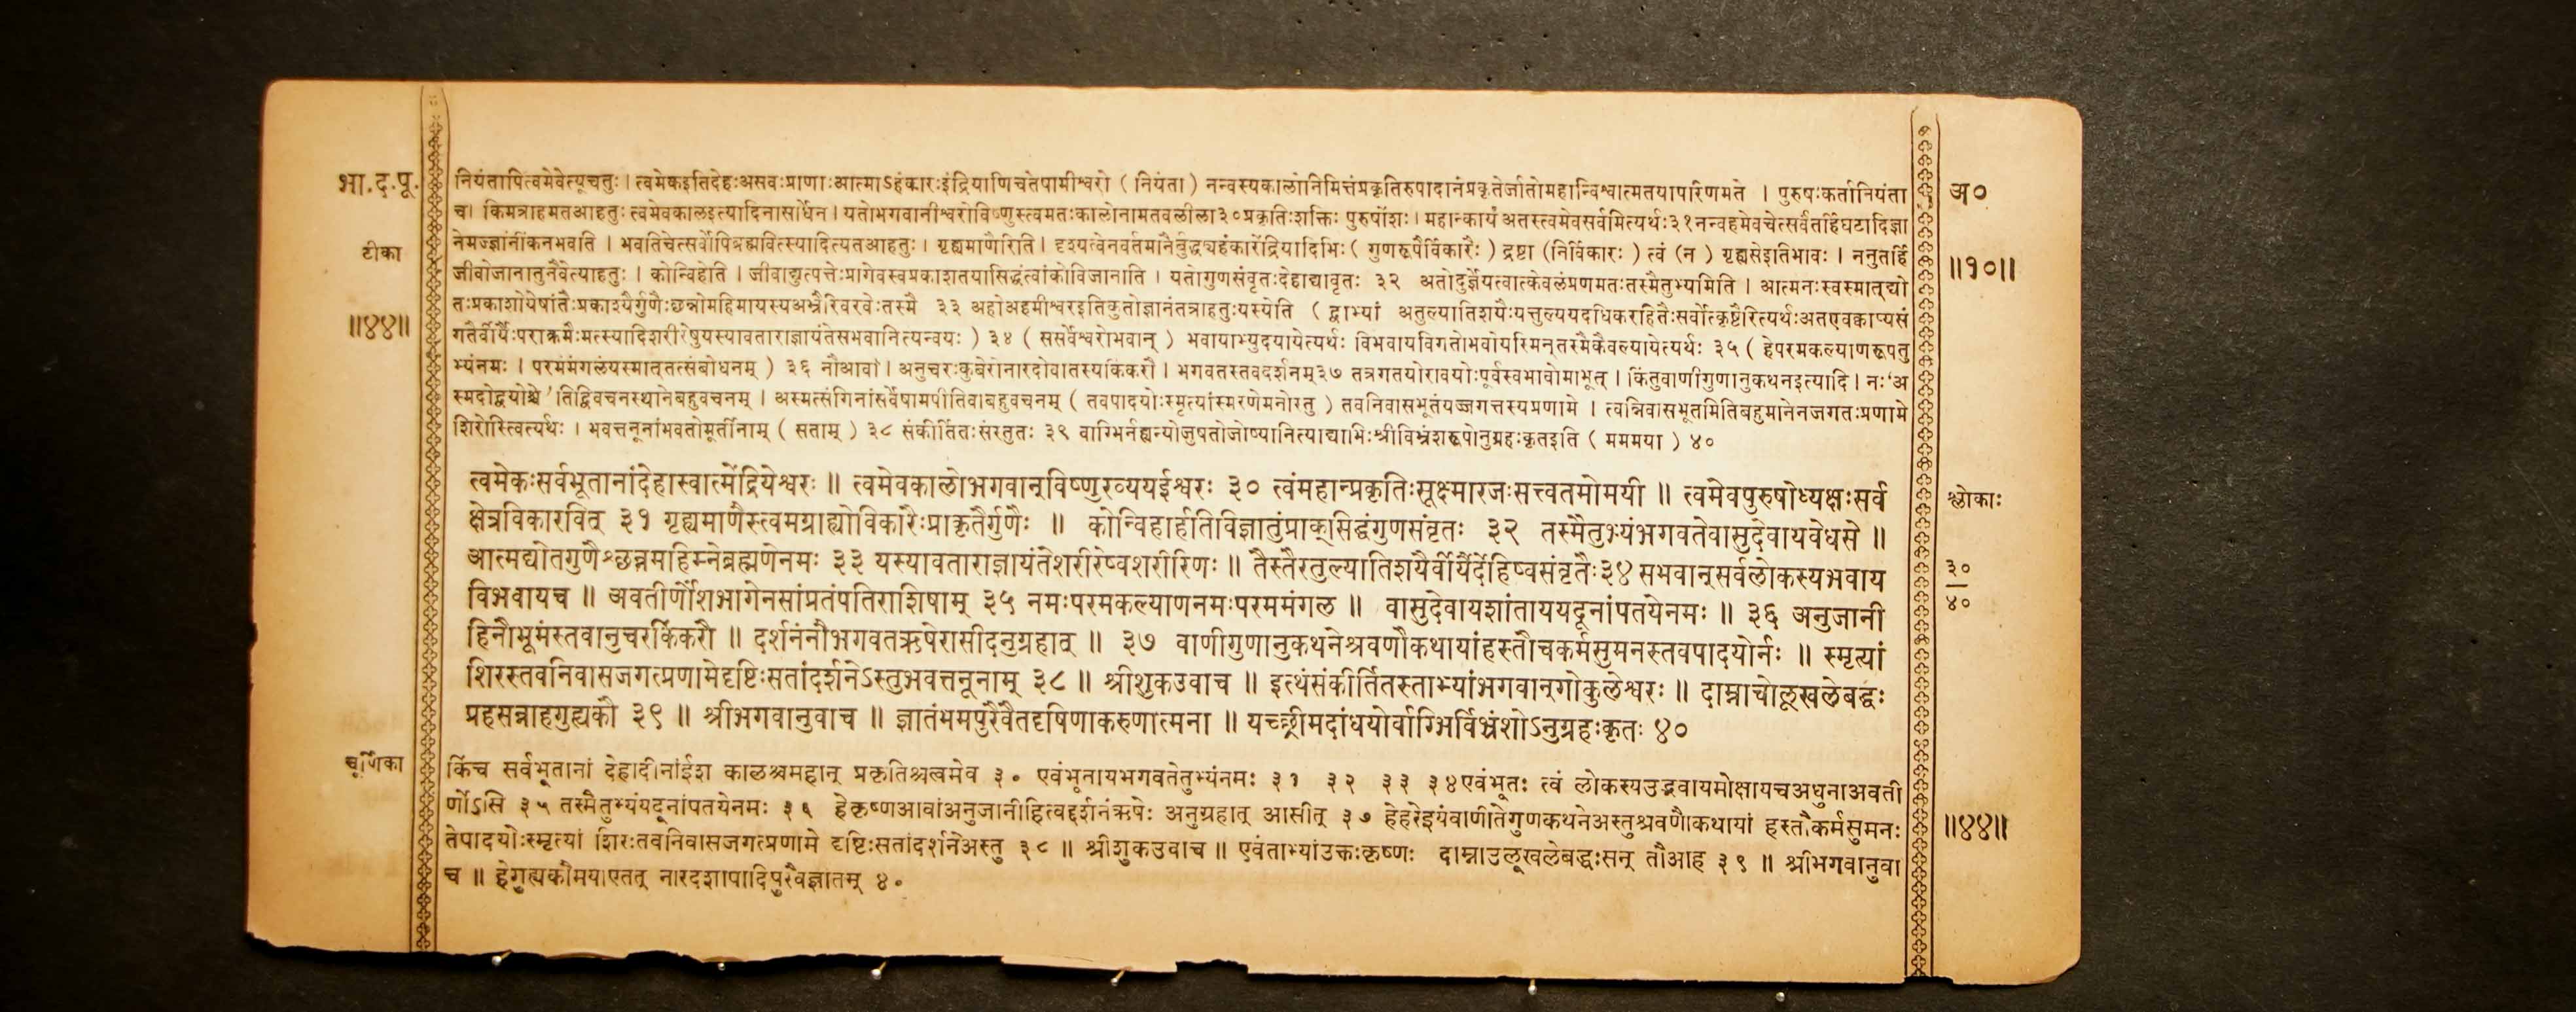 भा.द.पू.
टीका
॥४४॥
नियंतापित्वमेवेत्यूचतुः । त्वमेकइतिदेहःअसवःप्राणाःआत्माऽहंकारःइंद्रियाणिचतेषामीश्वरो ( नियंता ) नन्वस्यकालोनिमित्तंप्रकृतिरुपादानंप्रकृतेर्जातोमहान्विश्वात्मतयापरिणमते । पुरुषःकर्तानियंता
च। किमत्राहमतआहतुः त्वमेवकालइत्यादिनासार्धेन । यतोभगवानीश्वरोविष्णुस्त्वमतःकालोनामतवलीला३०प्रकृतिःशक्तिः पुरुषोंशः। महान्कार्यं अतस्त्वमेवसर्वमित्यर्थः३१नन्वहमेवचेत्सर्वंतर्हिघटादिज्ञा
नेमज्ज्ञानंकिंनभवति । भवतिचेत्सर्वोपिब्रह्मवित्स्यादित्यतआहतुः । गृह्यमाणैरिति । दृश्यत्वेनवर्तमानैर्बुद्ध्यहंकारेंद्रियादिभिः ( गुणरूपैर्विकारैः ) द्रष्टा (निर्विकारः ) त्वं (न ) गृह्यसेइतिभावः । ननुतर्हि
जीवोजानातुनैवेत्याहतुः । कोन्विहेति । जीवाद्युत्पत्तेःप्रागेवस्वप्रकाशतयासिद्धंत्वांकोविजानाति । यतोगुणसंवृतःदेहाद्यावृतः ३२ अतोदुर्ज्ञेयत्वात्केवलंप्रणमतःतस्मैतुभ्यमिति । आत्मनःस्वस्मात्द्यो
तःप्रकाशोयेषांतैःप्रकाश्यैर्गुणैःछन्नोमहिमायस्यअभ्रैरिवरवेःतस्मै ३३ अहोअहमीश्वरइतिकुतोज्ञानंतत्राहतुःयस्येति ( द्वाभ्यां अतुल्यातिशयैःयत्तुल्ययदधिकरहितैःसर्वोत्कृष्टैरित्यर्थःअतएवकाप्यसं
गतैर्वीर्यैःपराक्रमैःमत्स्यादिशरीरेषुयस्यावताराज्ञायंतेसभवानित्यन्वयः ) ३४ ( ससर्वेश्वरोभवान् ) भवायाभ्युदयायेत्यर्थः विभवायविगतोभवोयस्मिन्तस्मैकैवल्यायेत्यर्थः ३५ ( हेपरमकल्याणरूपतु
भ्यंनमः । परमंमंगलंयस्मात्तत्संबोधनम् ) ३६ नौआवां । अनुचरःकुबेरोनारदोवातस्यकिंकरौ । भगवतस्तवदर्शनम्३७ तत्रगतयोरावयोःपूर्वस्वभावोमाभूत् । किंतुवाणीगुणानुकथनइत्यादि । नः‘अ
स्मदोद्वयोश्चे’तिद्विवचनस्थानेबहुवचनम् । अस्मत्संगिनांसर्वेषामपीतिवाबहुवचनम् ( तवपादयोःस्मृत्यांस्मरणेमनोस्तु ) तवनिवासभूतंयज्जगत्तस्यप्रणामे । त्वन्निवासभूतमितिबहुमानेनजगतःप्रणामे
शिरोस्त्वित्यर्थः । भवत्तनूनांभवतोमूर्तीनाम् ( सताम् ) ३८ संकीर्तितःसंस्तुतः ३९ वाग्भिर्नह्यन्योजुषतोजोष्यानित्याद्याभिःश्रीविभ्रंशरूपोनुग्रहःकृतइति ( मममया ) ४०
त्वमेकःसर्वभूतानांदेहास्वात्मेंद्रियेश्वरः ॥ त्वमेवकालोभगवान्विष्णुरव्ययईश्वरः ३० त्वंमहान्प्रकृतिःसूक्ष्मारजःसत्त्वतमोमयी ॥ त्वमेवपुरुषोध्यक्षःसर्व
क्षेत्रविकारवित् ३१ गृह्यमाणैस्त्वमग्राह्योविकारैःप्राकृतैर्गुणैः ॥ कोन्विहार्हतिविज्ञातुंप्राक्सिद्धंगुणसंवृतः ३२ तस्मैतुभ्यंभगवतेवासुदेवायवेधसे ॥
आत्मद्योतगुणैश्छन्नमहिम्नेब्रह्मणेनमः ३३ यस्यावताराज्ञायंतेशरीरेष्वशरीरिणः ॥ तैस्तैरतुल्यातिशयैर्वीर्यैर्देहिष्वसंवृतैः३४ सभवान्सर्वलोकस्यभवाय
विभवायच ॥ अवतीर्णोंशभागेनसांप्रतंपतिराशिषाम् ३५ नमःपरमकल्याणनमःपरममंगल ॥ वासुदेवायशांताययदूनांपतयेनमः ॥ ३६ अनुजानी
हिनौभूमंस्तवानुचरकिंकरौ ॥ दर्शनंनौभगवतऋषेरासीदनुग्रहात् ॥ ३७ वाणीगुणानुकथनेश्रवणौकथायांहस्तौचकर्मसुमनस्तवपादयोर्नः ॥ स्मृत्यां
शिरस्तवनिवासजगत्प्रणामेदृष्टिःसतांदर्शनेऽस्तुभवत्तनूनाम् ३८ ॥ श्रीशुकउवाच ॥ इत्थंसंकीर्तितस्ताभ्यांभगवान्गोकुलेश्वरः ॥ दाम्नाचोलूखलेबद्धः
प्रहसन्नाहगुह्यकौ ३९ ॥ श्रीभगवानुवाच ॥ ज्ञातंममपुरैवैतदृषिणाकरुणात्मना ॥ यच्छ्रीमदांधयोर्वाग्भिर्विभ्रंशोऽनुग्रहःकृतः ४०
चूर्णिका
किंच सर्वभूतानां देहादीनांईश कालश्चमहान् प्रकृतिश्चत्वमेव ३० एवंभूतायभगवतेतुभ्यंनमः ३१ ३२ ३३ ३४एवंभूतः त्वं लोकस्यउद्भवायमोक्षायचअधुनाअवती
र्णोऽसि ३५ तस्मैतुभ्यंयदूनांपतयेनमः ३६ हेकृष्णआवांअनुजानीहित्वद्दर्शनंऋषेः अनुग्रहात् आसीत् ३७ हेहरेइयंवाणीतेगुणकथनेअस्तुश्रवणौकथायां हस्तौकर्मसुमनः
तेपादयोःस्मृत्यां शिरःतवनिवासजगत्प्रणामे दृष्टिःसतांदर्शनेअस्तु ३८ ॥ श्रीशुकउवाच ॥ एवंताभ्यांउक्तःकृष्णः दाम्नाउलूखलेबद्धःसन् तौआह ३९ ॥ श्रीभगवानुवा
च ॥ हेगुह्यकौमयाएतत् नारदशापादिपुरैवज्ञातम् ४०
अ०
॥१०॥
श्लोकाः
३०
४०
॥४४॥